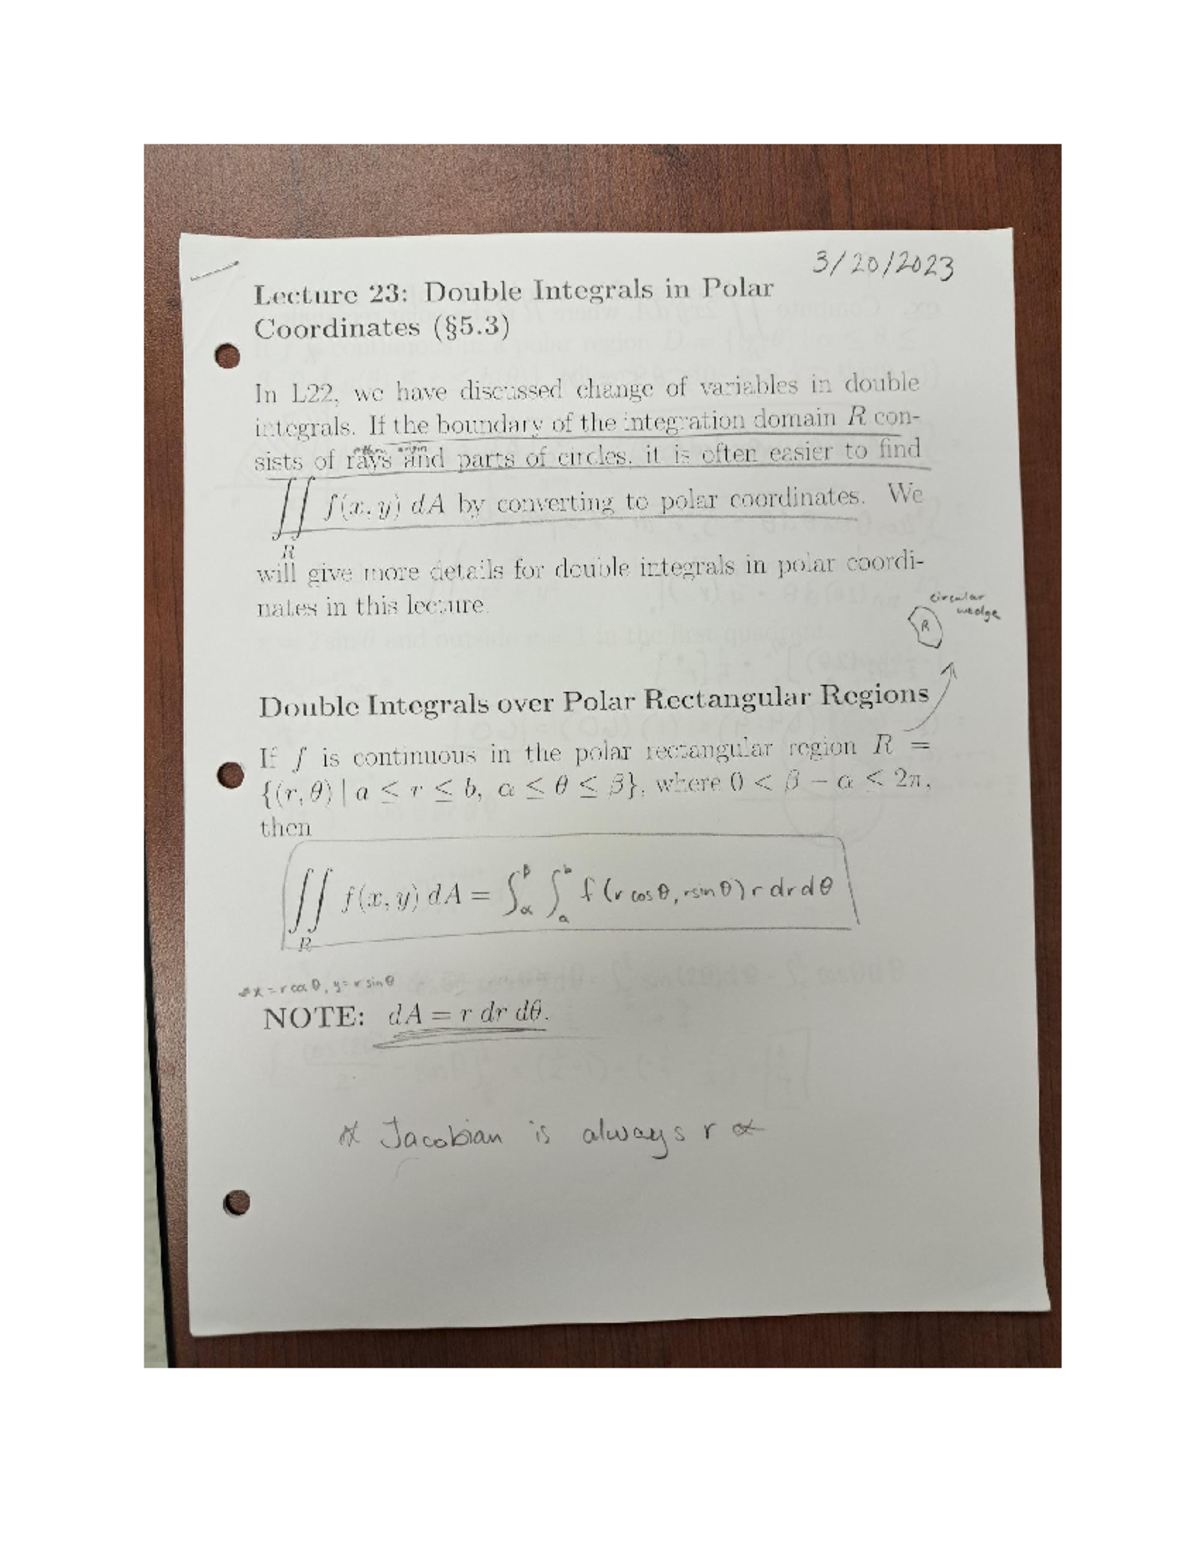 3/20/2023
Lecture 23: Double Integrals in Polar
Coordinates (§5.3)
In L22, we have discussed change of variables in double
integrals. If the boundary of the integration domain R con-
sists of rays and parts of circles, it is often easier to find
∬ f(x, y) dA by converting to polar coordinates. We
R
will give more details for double integrals in polar coordi-
nates in this lecture.
circular
wedge
R
Double Integrals over Polar Rectangular Regions
If f is continuous in the polar rectangular region R =
{(r, θ) | a ≤ r ≤ b, α ≤ θ ≤ β}, where 0 < β − α ≤ 2π,
then
∬ f(x, y) dA = ∫_α^β ∫_a^b f (r cos θ, r sin θ) r dr dθ
R
* x = r cos θ, y = r sin θ
NOTE: dA = r dr dθ.
* Jacobian is always r *